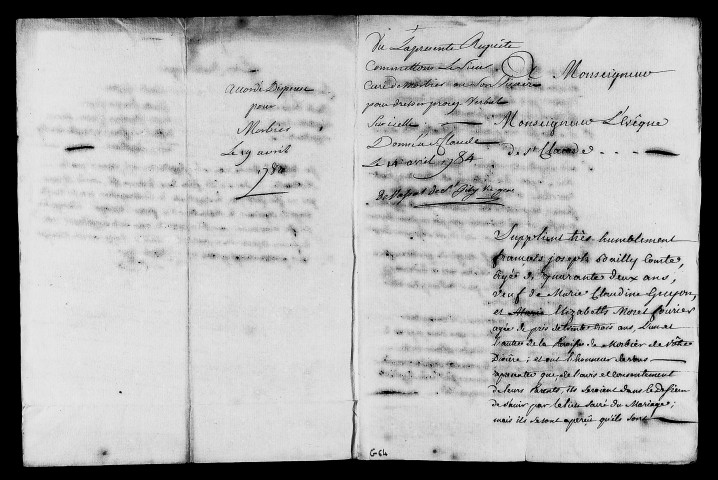 accordé Dispense
pour
Morbier
Le 19 avril
1784
Vu La presente Requête
Commettons Le Sieur
Curé de Morbier ou Son Vicaire
pour dresser procez Verbal
Sur icelle
Donné à St Claude
Le avril 1784
vic. gen.
A Monseigneur
Monseigneur L'Evêque
de St Claude
Supplient très humblement
françois joseph Bailly Comte,
âgée de quarante deux ans,
veuf de Marie Claudine Guyon,
et Marie Elizabeth Morel fourier
agée de près de trente trois ans, L'un et
L'autre de la Paroisse de Morbier de votre
Diocèse; et ont l'honneur de vous
representer que de l'avis et consentement
de leurs Parents, ils seroient dans le dessein
de s'unir par le lien sacré du Mariage;
mais ils se sont aperçu qu'ils sont
G 64